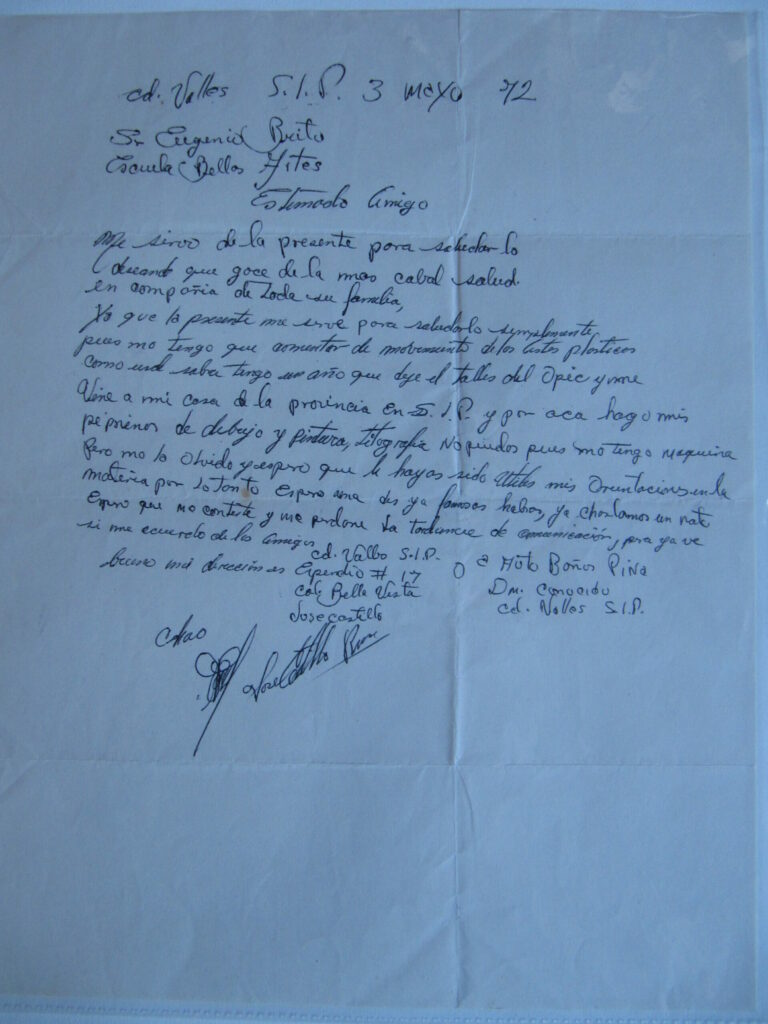 cd. Valles S.L.P. 3 mayo 72
Sr Eugenio Brito
Escuela Bellas Artes
Estimado Amigo
Me sirvo de la presente para saludarlo
deseando que goce de la mas cabal salud.
en compañia de toda su familia,
Ya que la presente me sirve para saludarlo simplemente
pues no tengo que comentar de movimento de los artes plasticos
como usd sabra tengo un año que deje el taller del Opic y me
vine a mi casa de la provincia en S.L.P. y por aca hago mis
pepninos de dibujo y pintura, litografia No puedos pues no tengo maquina
Pero no lo olvido y espero que le hayas sido utiles mis Orientaciones en la
materia por lo tanto espero una de ya famosas habios, ya charlamos un rato
espero que me conteste y me perdone la tardanza de comunicación, pra ya ve
si me acuerdo de los amigos
bueno mi direccion es
cd. Valles S.L.P.
Expendio # 17
col. Bella Vista
Jose castillo
O a Moto Baños Piña
Dm. Conocido
cd. Valles S.L.P.
Chao
Jose Castillo